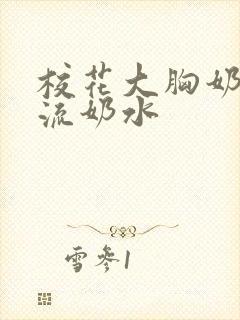 校花大胸奶
流奶水
雪参1